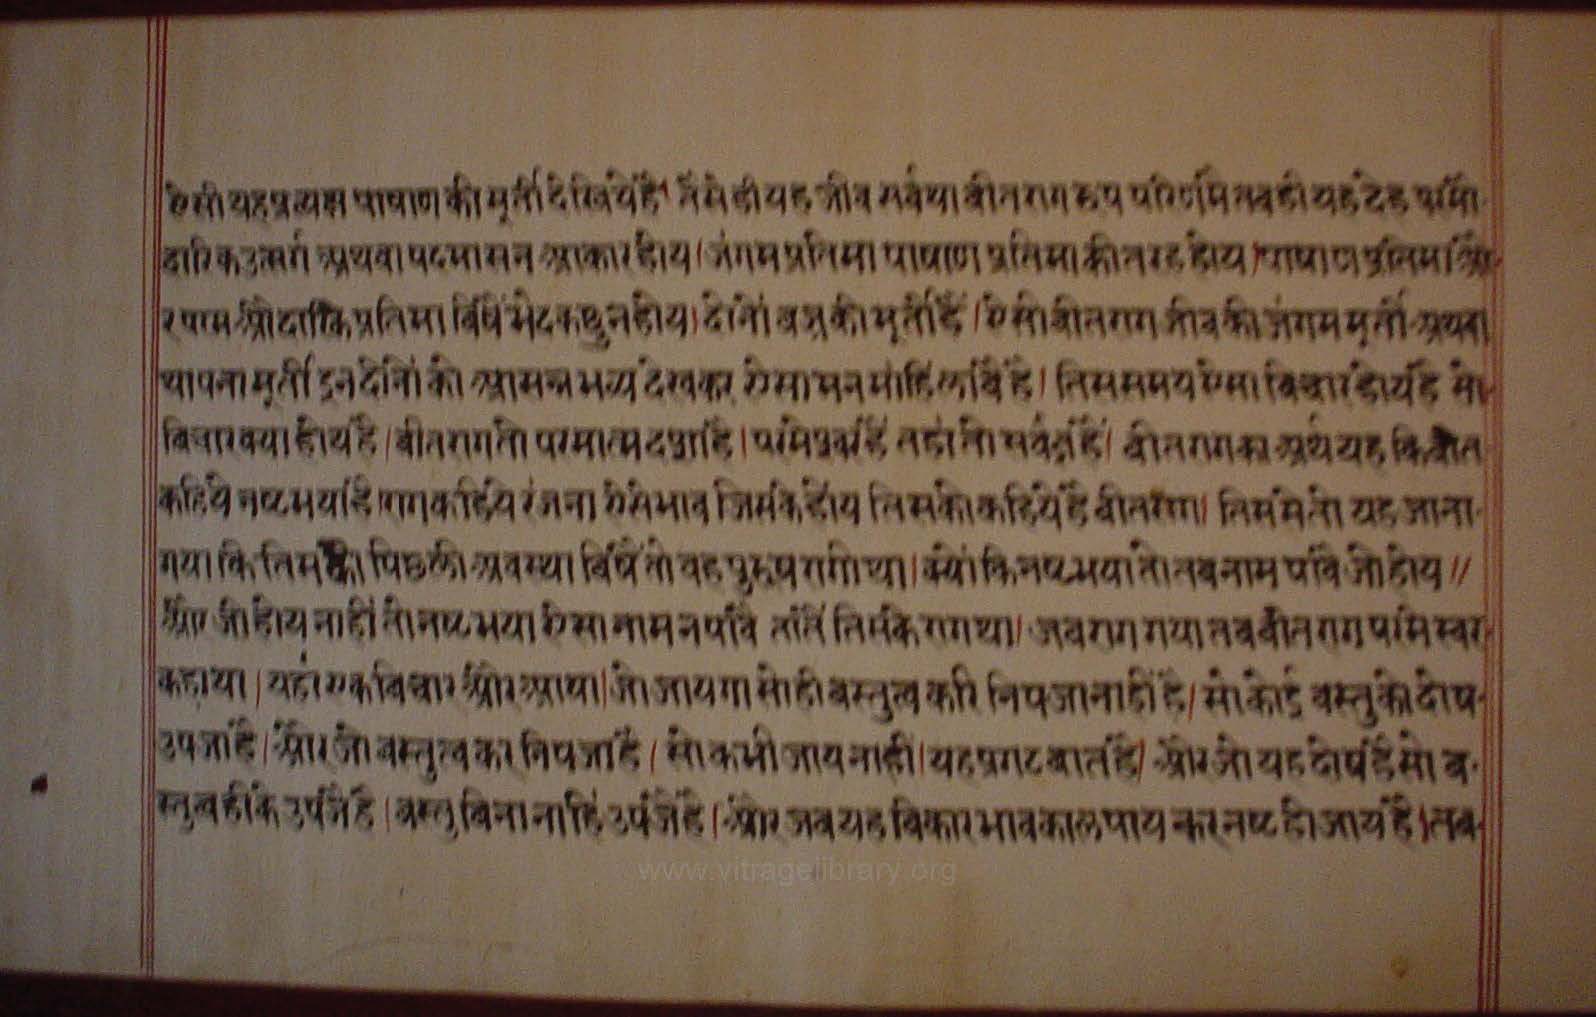 ऐसी यह प्रत्यक्ष पाषाण की मूर्ती देखिये है। तैसे ही यह जीव सर्वथा वीतराग रूप परिणमै तब ही यह देह परमौ-
दारिक उत्सर्ग अथवा पदमासन आकार होय। जंगम प्रतिमा पाषाण प्रतिमा की तरह होय। पाषाण प्रतिमा और
र परम औदारिक प्रतिमा बिषैं भेद कछु न होय। दोनों वज्र की मूर्ती हैं। ऐसी वीतराग जीव की जंगम मूर्ती अथवा
थापना मूर्ती इन दोनों को आसन्न भव्य देखकर ऐसा मन मांहि लावै है। तिस समय ऐसा विचार होय है सो-
विचार क्या होय है। वीतराग तो परमात्म दशा है। परमेश्वर है तहां तो सर्वज्ञ है। वीतराग का अर्थ यह कि वीत
कहिये नष्ट भया है राग कहिये रंजना ऐसे भाव जिसके होय तिसको कहिये है वीतराग। तिस मे तो यह जाना-
गया कि तिसकी पिछली अवस्था बिषैं तो वह पुरुष रागी था। क्यों कि नष्ट भया तो तब नाम पावै जो होय॥
और जो होय नाहीं तो नष्ट भया ऐसा नाम न पावै तातैं तिसके राग था। जब राग गया तब वीतराग परमेस्वर-
कहाया। यहां एक विचार और आया। जो जायगा सो ही वस्तुत्व करि निपजा नाहीं है। सो कोई वस्तु को दोष-
उपजा है। और जो वस्तुत्व कर निपजा है। सो कभी जाय नाहीं। यह प्रगट बात है। और जो यह दोष है सो व-
स्तुत्व ही के उपजै है। वस्तु बिना नाहिं उपजै है। और जब यह विकार भाव काल पाय कर नष्ट हो जाय है। तब-
www.vitragelibrary.org